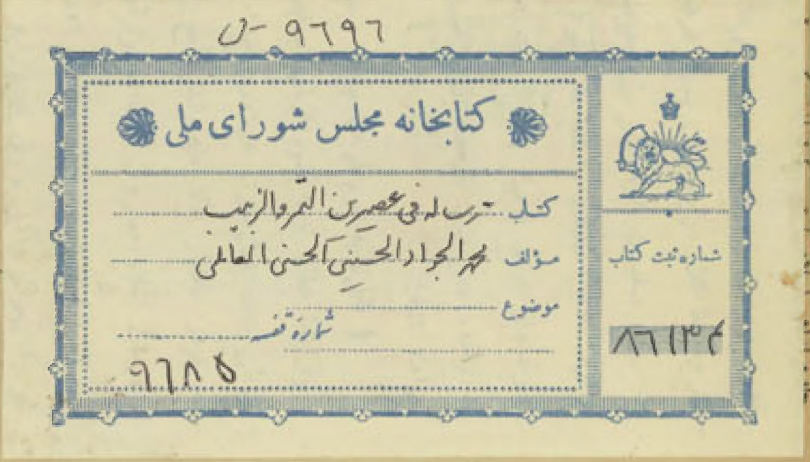 ۹۶۹۶ - ف
کتابخانه مجلس شورای ملی
کتاب رساله فی عصیرین التمر والزبیب
مؤلف محمد الجواد الحسینی الحسنی العاملی
موضوع
شمارهٔ قفسه
۹۶۸۵
شماره ثبت کتاب
۸۶۱۳۴